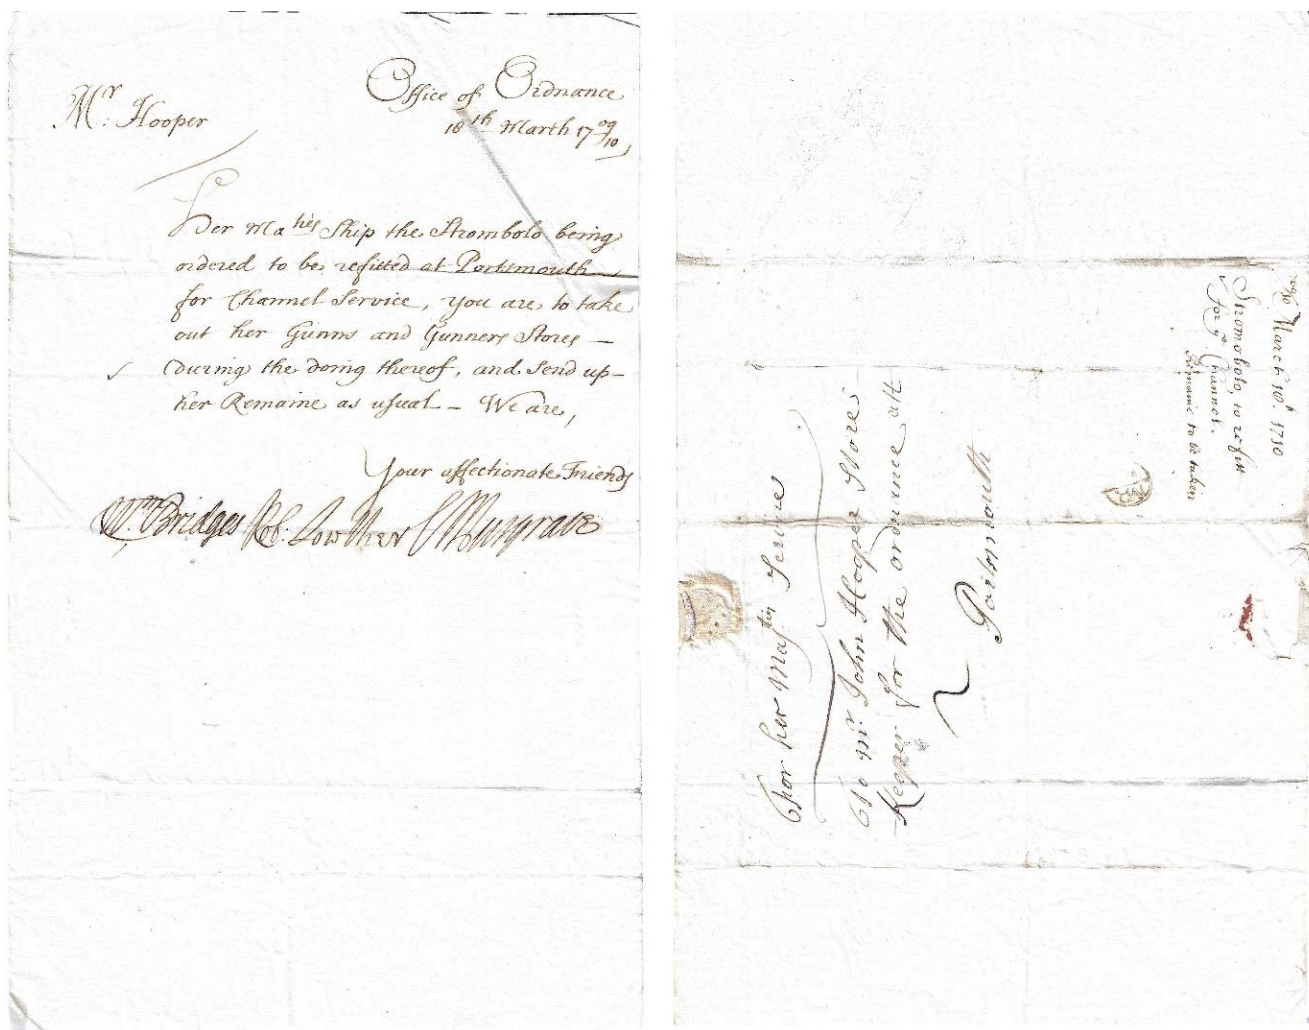 Office of Ordnance
Mr. Hooper
18th March 1709/10
Her Maties Ship the Strombolo being
ordered to be refitted at Portsmouth
for Channel Service, you are to take
out her Gunns and Gunners Stores —
during the doing thereof, and send up
her Remaine as usual — We are,
Your affectionate Friends
Wm Bridges Ro: Lowther C Musgrave
For her Majties Service
To Mr John Hooper Store
Keeper for the ordnance att
Portsmouth
March 18th. 1710
Strombolo, to refitt
for ye Channel.
Remaine to be taken